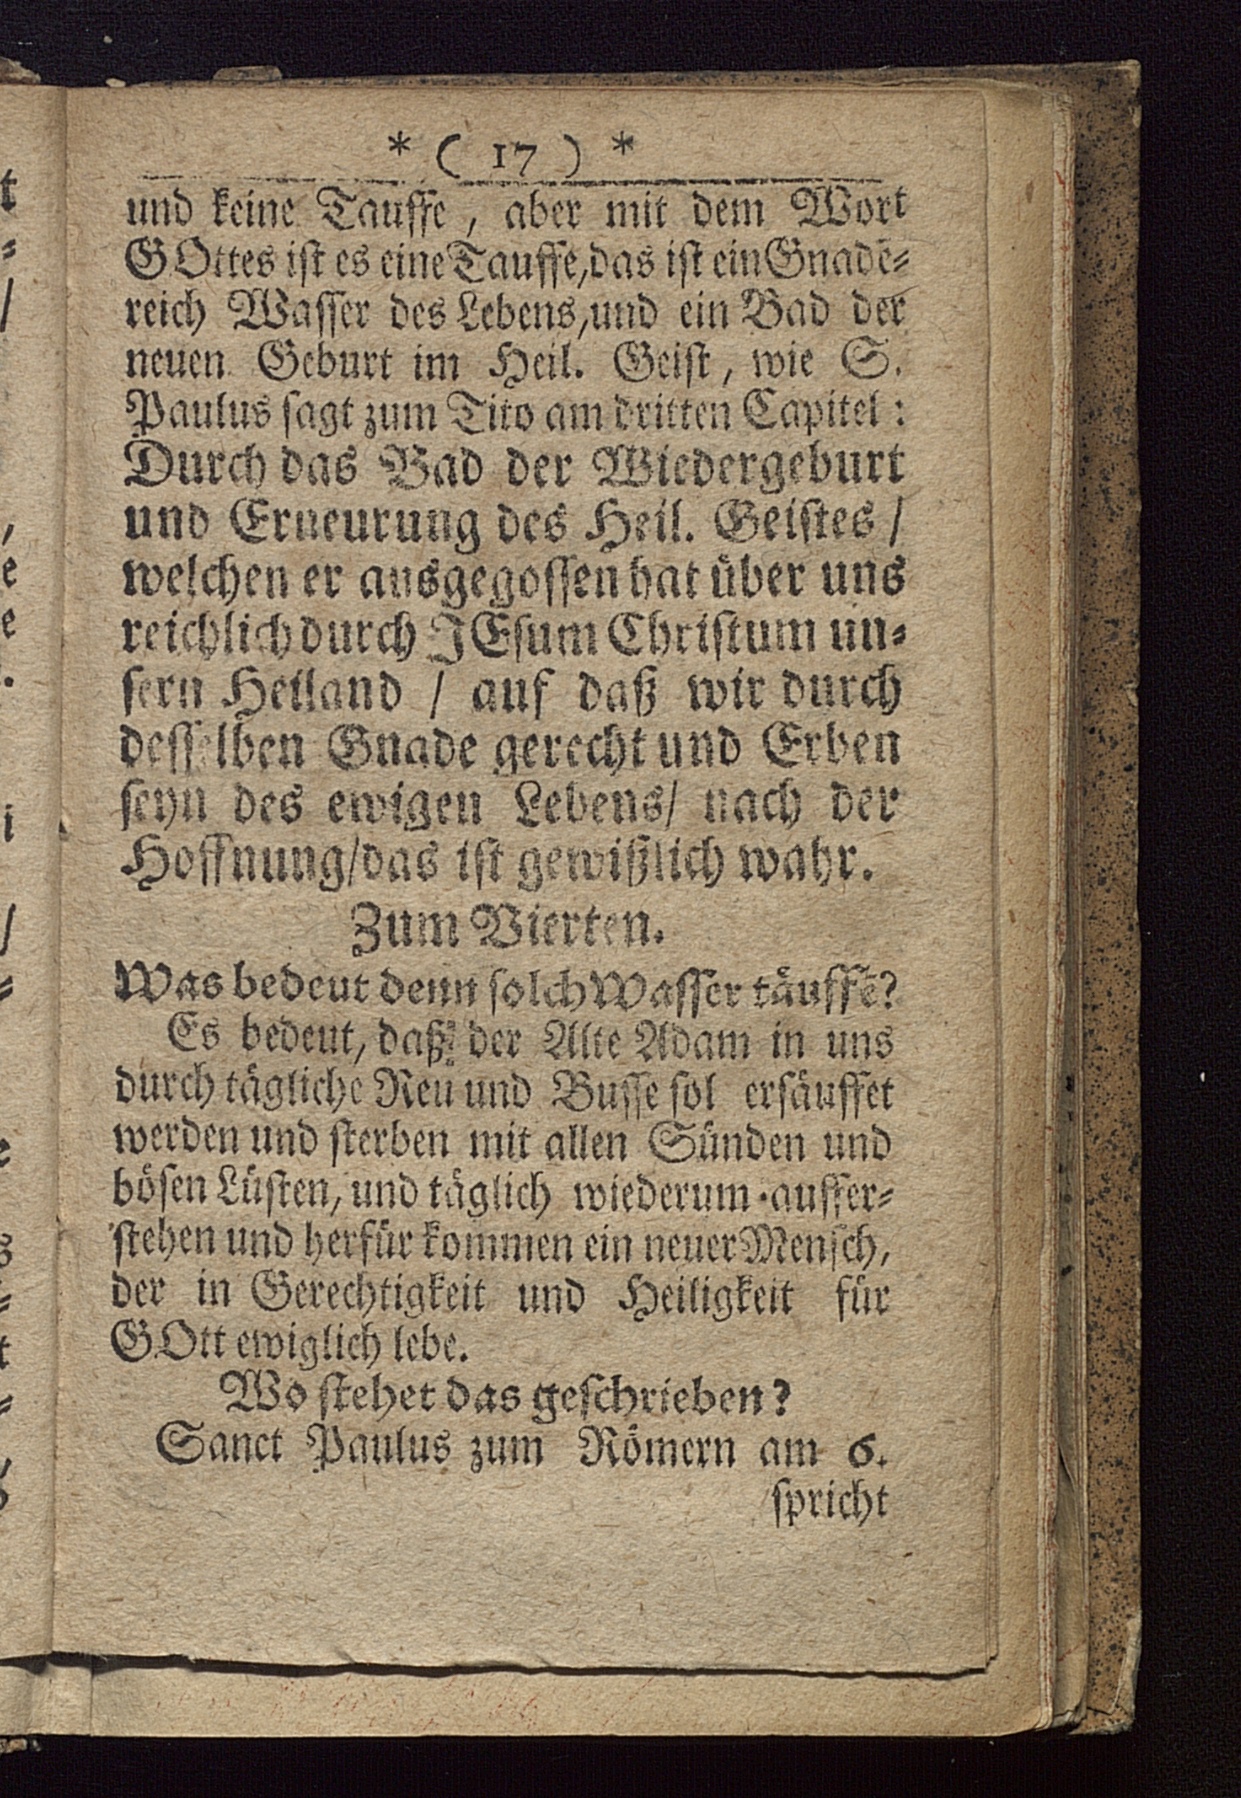 * ( 17 ) *
und keine Tauffe, aber mit dem Wort
GOttes ist es eine Tauffe, das ist ein Gnadē-
reich Wasser des Lebens, und ein Bad der
neuen Geburt im Heil. Geist, wie S.
Paulus sagt zum Tito am dritten Capitel:
Durch das Bad der Wiedergeburt
und Erneurung des Heil. Geistes /
welchen er ausgegossen hat über uns
reichlich durch JEsum Christum un-
sern Heiland / auf daß wir durch
desselben Gnade gerecht und Erben
seyn des ewigen Lebens / nach der
Hoffnung / das ist gewißlich wahr.
Zum Vierten.
Was bedeut denn solch Wasser täuffē?
Es bedeut, daß der Alte Adam in uns
durch tägliche Reu und Busse sol ersäuffet
werden und sterben mit allen Sünden und
bösen Lüsten, und täglich wiederum auffer-
stehen und herfür kommen ein neuer Mensch,
der in Gerechtigkeit und Heiligkeit für
GOtt ewiglich lebe.
Wo stehet das geschrieben?
Sanct Paulus zum Römern am 6.
spricht